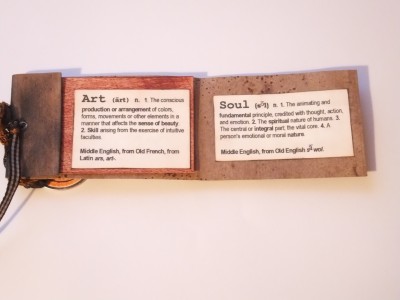 Art (ärt) n. 1. The conscious
production or arrangement of colors,
forms, movements or other elements in a
manner that affects the sense of beauty.
2. Skill arising from the exercise of intuitive
faculties.
Middle English, from Old French, from
Latin ars, art-.
Soul n. 1. The animating and
fundamental principle, credited with thought, action,
and emotion. 2. The spiritual nature of humans. 3.
The central or integral part; the vital core. 4. A
person's emotional or moral nature.
Middle English, from Old English